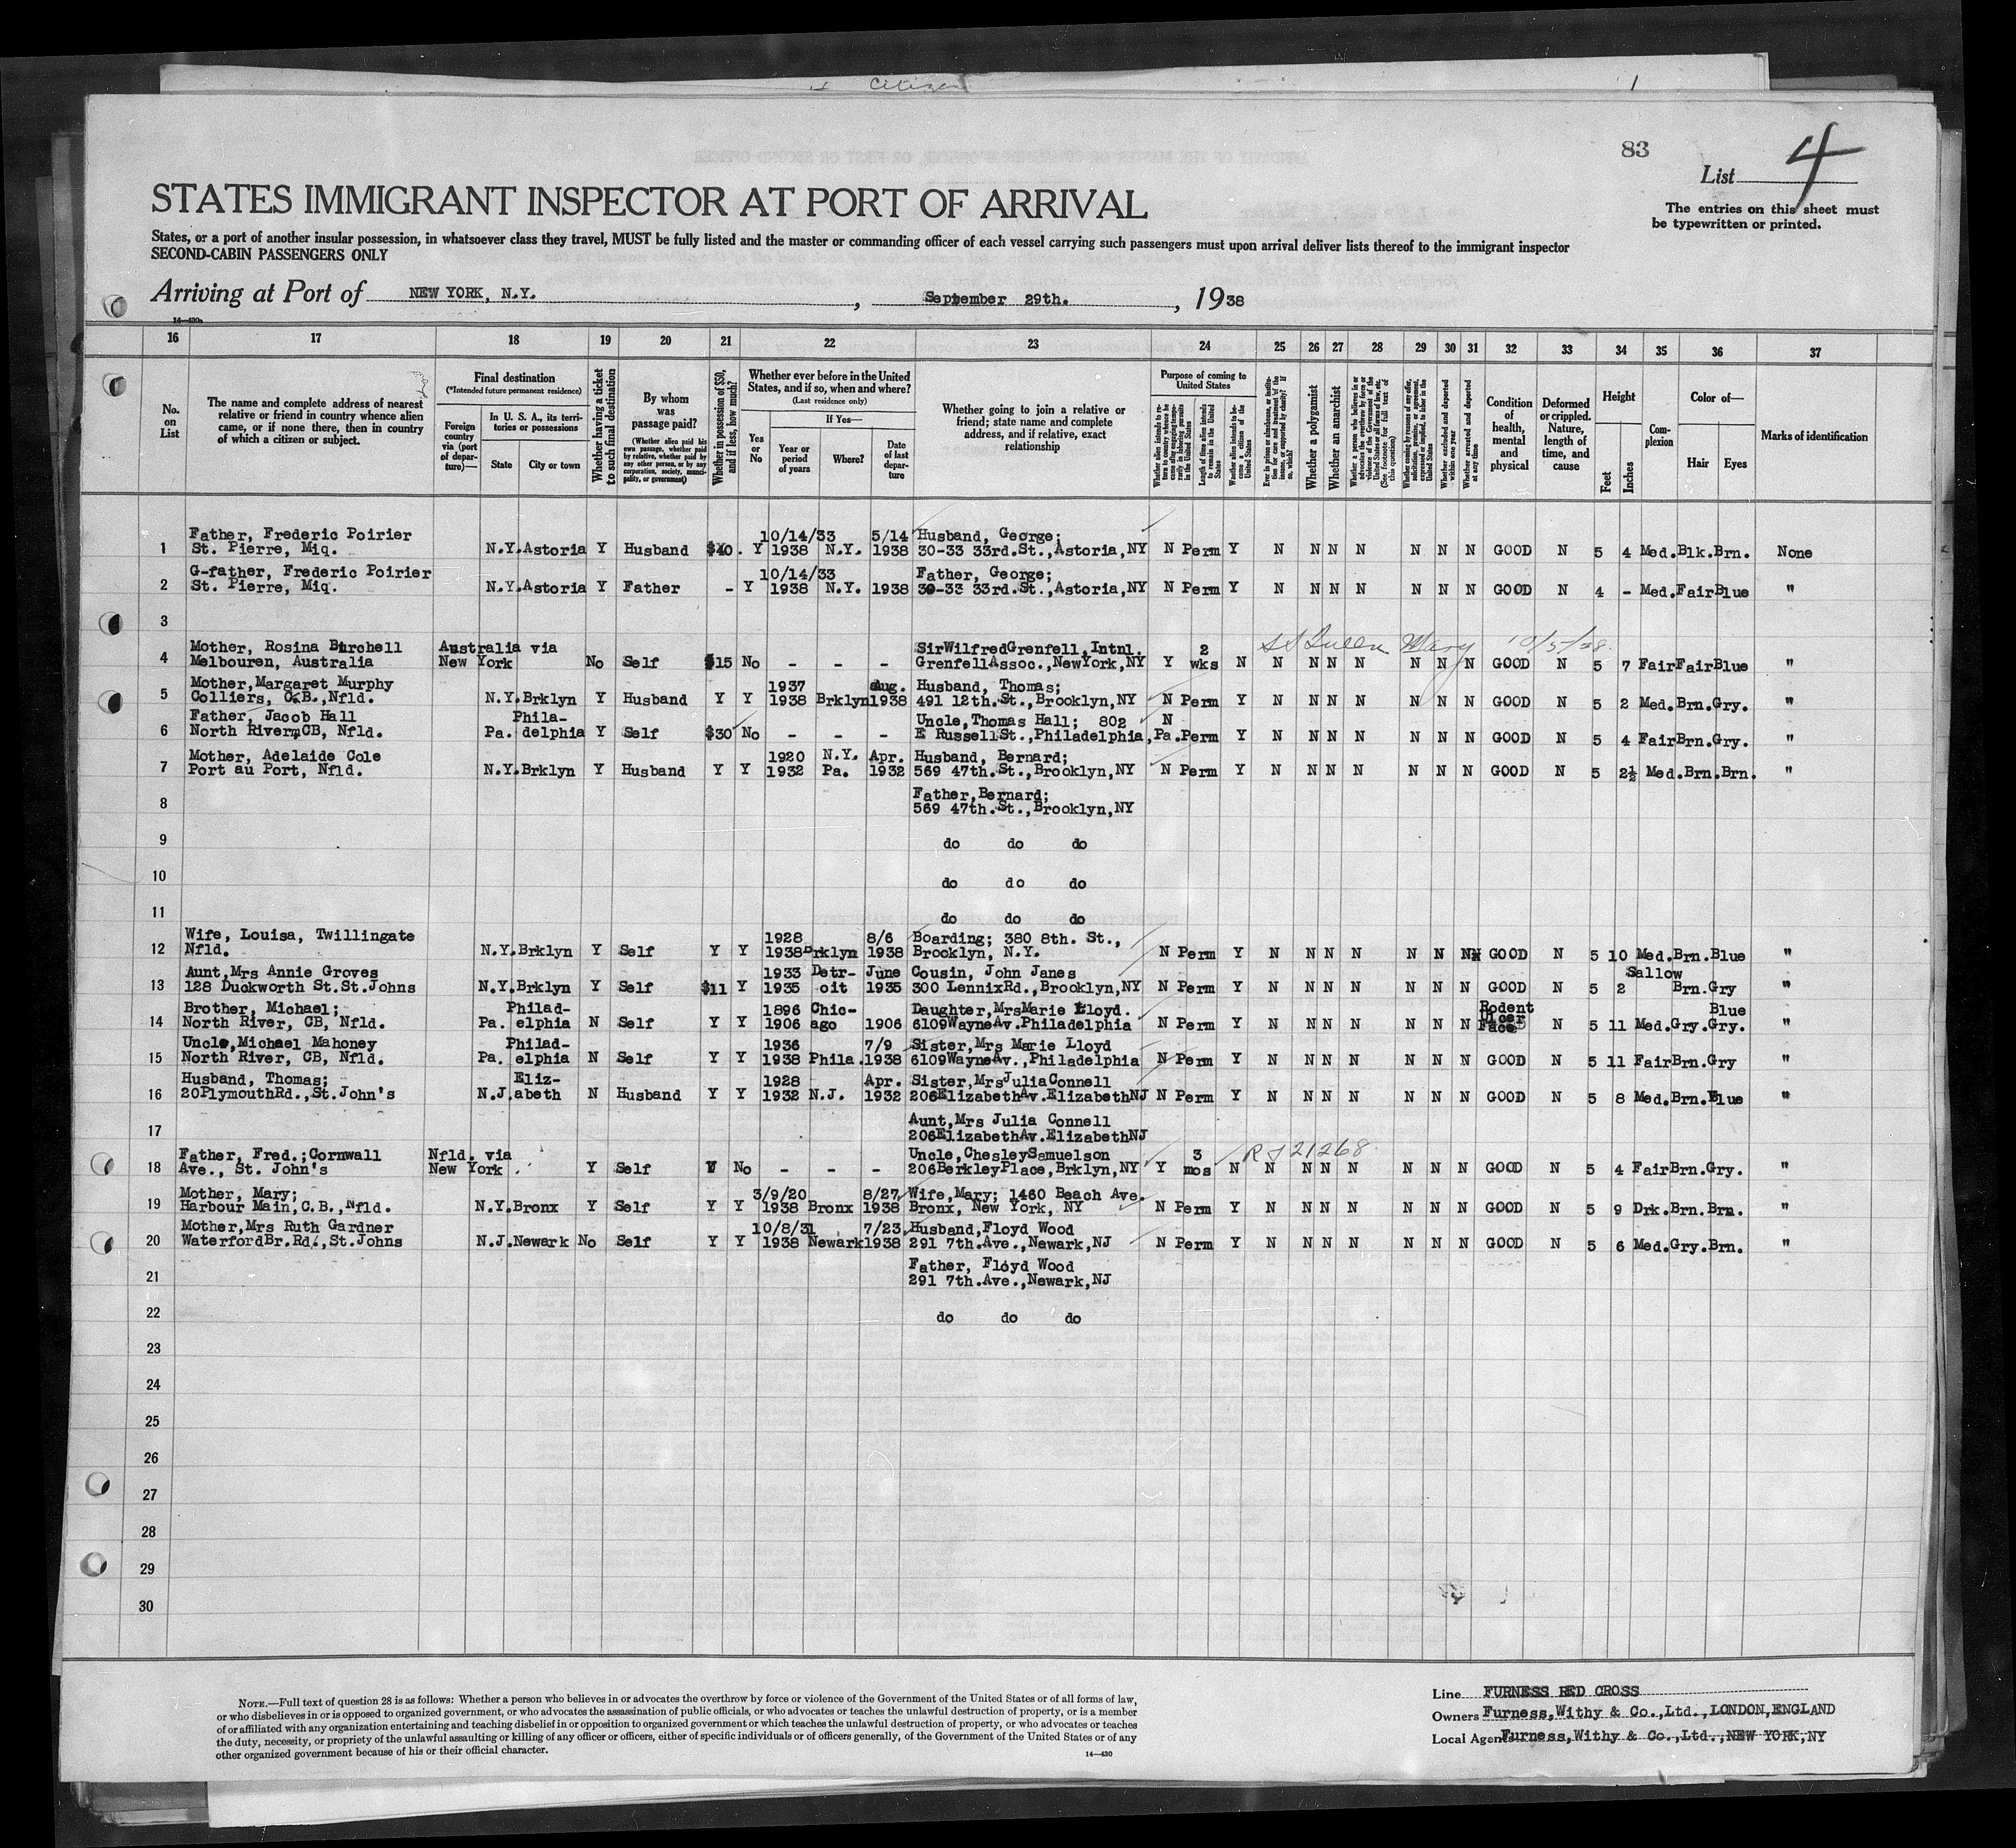 Citizen
1
83
List 4
STATES IMMIGRANT INSPECTOR AT PORT OF ARRIVAL
The entries on this sheet must
be typewritten or printed.
States, or a port of another insular possession, in whatsoever class they travel, MUST be fully listed and the master or commanding officer of each vessel carrying such passengers must upon arrival deliver lists thereof to the immigrant inspector
SECOND-CABIN PASSENGERS ONLY
Arriving at Port of NEW YORK, N.Y. , September 29th. , 1938
16 17 18 19 20 21 22 23 24 25 26 27 28 29 30 31 32 33 34 35 36 37
No. on List
The name and complete address of nearest relative or friend in country whence alien came, or if none there, then in country of which a citizen or subject.
Final destination
(*Intended future permanent residence)
Foreign country via (port of departure)—
In U. S. A., its territories or possessions
State
City or town
Whether having a ticket to such final destination
By whom was passage paid?
(Whether alien paid his own passage, whether paid by relative, whether paid by any other person, or by any corporation, society, municipality, or government)
Whether in possession of $50, and if less, how much?
Whether ever before in the United States, and if so, when and where?
(Last residence only)
Yes or No
If Yes—
Year or period of years
Where?
Date of last departure
Whether going to join a relative or friend; state name and complete address, and if relative, exact relationship
Purpose of coming to United States
Whether alien intends to return to country whence he came after engaging temporarily in laboring pursuits in the United States
Length of time alien intends to remain in the United States
Whether alien intends to become a citizen of the United States
Ever in prison or almshouse, or institution for care and treatment of the insane, or supported by charity? If so, which?
Whether a polygamist
Whether an anarchist
Whether a person who believes in or advocates the overthrow by force or violence of the Government of the United States or all forms of law, etc. (See footnote for full text of this question)
Whether coming by reasons of any offer, solicitation, promise, or agreement, expressed or implied, to labor in the United States
Whether excluded and deported within one year
Whether arrested and deported at any time
Condition of health, mental and physical
Deformed or crippled. Nature, length of time, and cause
Height
Feet
Inches
Complexion
Color of—
Hair
Eyes
Marks of identification
Father, Frederic Poirier 10/14/33 5/14 Husband, George;
1 St. Pierre, Miq. N.Y. Astoria Y Husband $40. Y 1938 N.Y. 1938 30-33 33rd.St.,Astoria,NY N Perm Y N N N N N N N GOOD N 5 4 Med. Blk. Brn. None
G-father, Frederic Poirier 10/14/33 Father, George;
2 St. Pierre, Miq. N.Y. Astoria Y Father - Y 1938 N.Y. 1938 30-33 33rd.St.,Astoria,NY N Perm Y N N N N N N N GOOD N 4 - Med. Fair Blue "
3
Mother, Rosina Birchell Australia via SirWilfredGrenfell,Intnl. 2 SS Queen Mary 10/5/38.
4 Melbouren, Australia New York No Self $15 No - - - GrenfellAssoc.,NewYork,NY Y wks N N N N N N N N GOOD N 5 7 Fair Fair Blue "
Mother,Margaret Murphy 1937 Aug. Husband, Thomas;
5 Colliers, C.B.,Nfld. N.Y. Brklyn Y Husband Y Y 1938 Brklyn 1938 491 12th.St.,Brooklyn,NY N Perm Y N N N N N N N GOOD N 5 2 Med. Brn. Gry. "
Father, Jacob Hall Phila- Uncle,Thomas Hall; 802 N
6 North River,CB, Nfld. Pa. delphia Y Self $30 No - - - E RussellSt.,Philadelphia,Pa. Perm Y N N N N N N N GOOD N 5 4 Fair Brn. Gry. "
Mother, Adelaide Cole 1920 N.Y. Apr. Husband, Bernard;
7 Port au Port, Nfld. N.Y. Brklyn Y Husband Y Y 1932 Pa. 1932 569 47th.St.,Brooklyn,NY N Perm Y N N N N N N N GOOD N 5 2½ Med. Brn. Brn. "
Father,Bernard;
8 569 47th.St.,Brooklyn,NY
9 do do do
10 do do do
11 do do do
Wife, Louisa, Twillingate 1928 8/6 Boarding; 380 8th. St.,
12 Nfld. N.Y. Brklyn Y Self Y Y 1938 Brklyn 1938 Brooklyn, N.Y. N Perm Y N N N N N N N GOOD N 5 10 Med. Brn. Blue "
Aunt,Mrs Annie Groves 1933 Detr- June Cousin, John Janes Sallow
13 128 Duckworth St.St.Johns N.Y. Brklyn Y Self $11 Y 1935 oit 1935 300 LennixRd.,Brooklyn,NY N Perm Y N N N N N N N GOOD N 5 2 Brn. Gry "
Brother, Michael; Philad- 1896 Chic- Daughter,MrsMarie Lloyd. Rodent Ulcer Blue
14 North River, CB, Nfld. Pa. elphia N Self Y Y 1906 ago 1906 6109WayneAv.Philadelphia N Perm Y N N N N N N N Face N 5 11 Med. Gry. Gry. "
Uncle,Michael Mahoney Philad- 1936 7/9 Sister,Mrs Marie Lloyd
15 North River, CB, Nfld. Pa. elphia N Self Y Y 1938 Phila. 1938 6109WayneAv.,Philadelphia N Perm Y N N N N N N N GOOD N 5 11 Fair Brn. Gry "
Husband, Thomas; Eliz- 1928 Apr. Sister,MrsJuliaConnell
16 20PlymouthRd.,St.John's N.J. abeth N Husband Y Y 1932 N.J. 1932 206ElizabethAv.ElizabethNJ N Perm Y N N N N N N N GOOD N 5 8 Med. Brn. Blue "
Aunt,Mrs Julia Connell
17 206ElizabethAv.ElizabethNJ
Father, Fred.;Cornwall Nfld. via Uncle,ChesleySamuelson 3 21268
18 Ave., St. John's New York Y Self Y No - - - 206BerkleyPlace,Brklyn,NY Y mos N N N N N N N N GOOD N 5 4 Fair Brn. Gry. "
Mother, Mary; 3/9/20 8/27 Wife,Mary; 1460 Beach Ave.
19 Harbour Main,C.B.,Nfld. N.Y. Bronx Y Self Y Y 1938 Bronx 1938 Bronx, New York, NY N Perm Y N N N N N N N GOOD N 5 9 Drk. Brn. Brn. "
Mother,Mrs Ruth Gardner 10/8/31 7/23 Husband,Floyd Wood
20 WaterfordBr.Rd.,St.Johns N.J. Newark No Self Y Y 1938 Newark 1938 291 7th.Ave.,Newark,NJ N Perm Y N N N N N N N GOOD N 5 6 Med. Gry. Brn. "
Father, Floyd Wood
21 291 7th.Ave.,Newark,NJ
22 do do do
23
24
25
26
27
28
29
30
NOTE.—Full text of question 28 is as follows: Whether a person who believes in or advocates the overthrow by force or violence of the Government of the United States or of all forms of law,
or who disbelieves in or is opposed to organized government, or who advocates the assassination of public officials, or who advocates or teaches the unlawful destruction of property, or is a member
of or affiliated with any organization entertaining and teaching disbelief in or opposition to organized government or which teaches the unlawful destruction of property, or who advocates or teaches
the duty, necessity, or propriety of the unlawful assaulting or killing of any officer or officers, either of specific individuals or of officers generally, of the Government of the United States or of any
other organized government because of his or their official character.
14—430
Line FURNESS RED CROSS
Owners Furness,Withy & Co.,Ltd.,LONDON,ENGLAND
Local Agents Furness,Withy & Co.,Ltd.,NEW YORK,NY